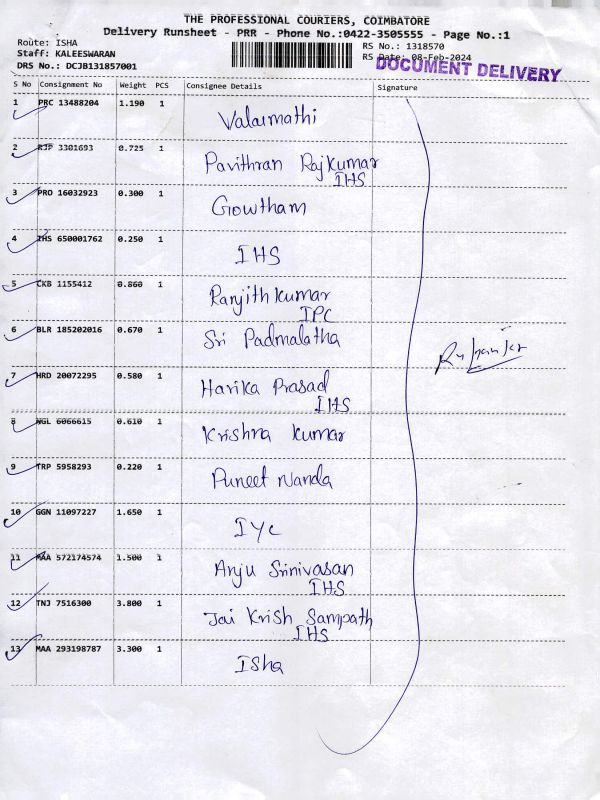 THE PROFESSIONAL COURIERS, COIMBATORE
Delivery Runsheet - PRR - Phone No.:0422-3505555 - Page No.:1
Route: ISHA
Staff: KALEESWARAN
DRS No.: DCJB131857001
RS No.: 1318570
RS Date: 08-Feb-2024
DOCUMENT DELIVERY
S No Consignment No Weight PCS Consignee Details Signature
1 PRC 13488204 1.190 1 Valarmathi
2 RJP 3301693 0.725 1 Pavithran Rajkumar
IHS
3 PRO 16032923 0.300 1 Gowtham
4 IHS 650001762 0.250 1 IHS
5 CKB 1155412 0.860 1 Ranjith kumar
IPC
6 BLR 185202016 0.670 1 Sri Padmalatha
7 HRD 20072295 0.580 1 Harika Prasad
IHS
8 NGL 6066615 0.610 1 Krishna kumar
9 TRP 5958293 0.220 1 Puneet Nanda
10 GGN 11097227 1.650 1 IYC
11 MAA 572174574 1.500 1 Anju Srinivasan
IHS
12 TNJ 7516300 3.800 1 Jai Krish Sampath
IHS
13 MAA 293198787 3.300 1 Isha